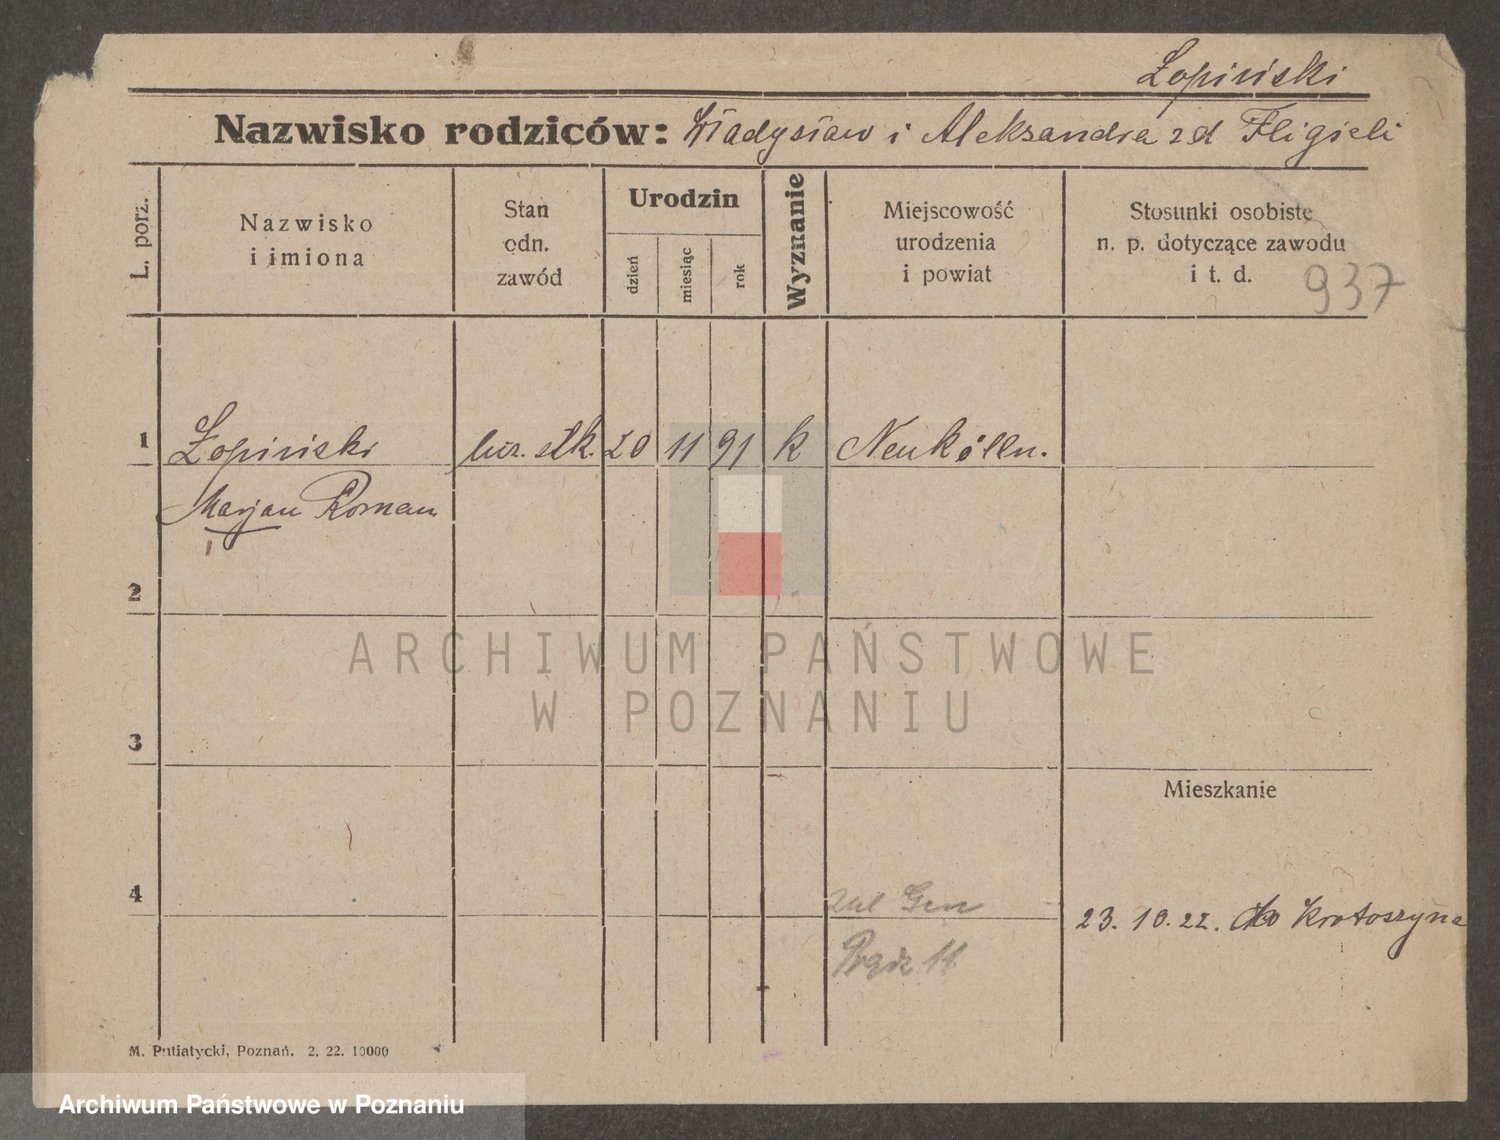 Łopiński
Nazwisko rodziców: Władysław i Aleksandra zd Fligieli
L. porz.
Nazwisko
i imiona
Stan
odn.
zawód
Urodzin
dzień
miesiąc
rok
Wyznanie
Miejscowość
urodzenia
i powiat
Stosunki osobiste
n. p. dotyczące zawodu
i t. d.
937
1 Łopiński 20 11 91 k Neukölln.
Marjan Roman
2
3
Mieszkanie
4
Gen
23. 10. 22. do Krotoszyna
11
M. Putiatycki, Poznań. 2. 22. 10000
ARCHIWUM PAŃSTWOWE
W POZNANIU
Archiwum Państwowe w Poznaniu